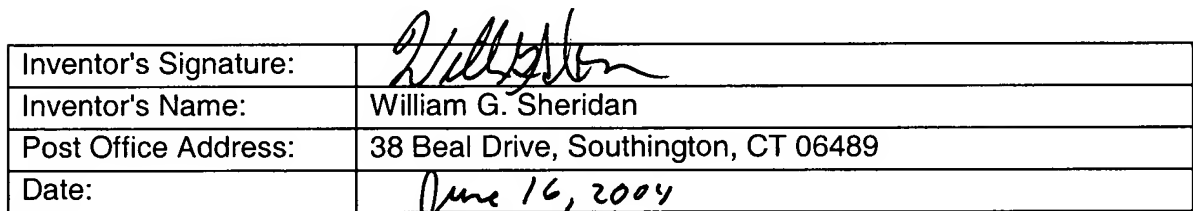 Inventor's Signature:
Inventor's Name: William G. Sheridan
Post Office Address: 38 Beal Drive, Southington, CT 06489
Date: June 16, 2004